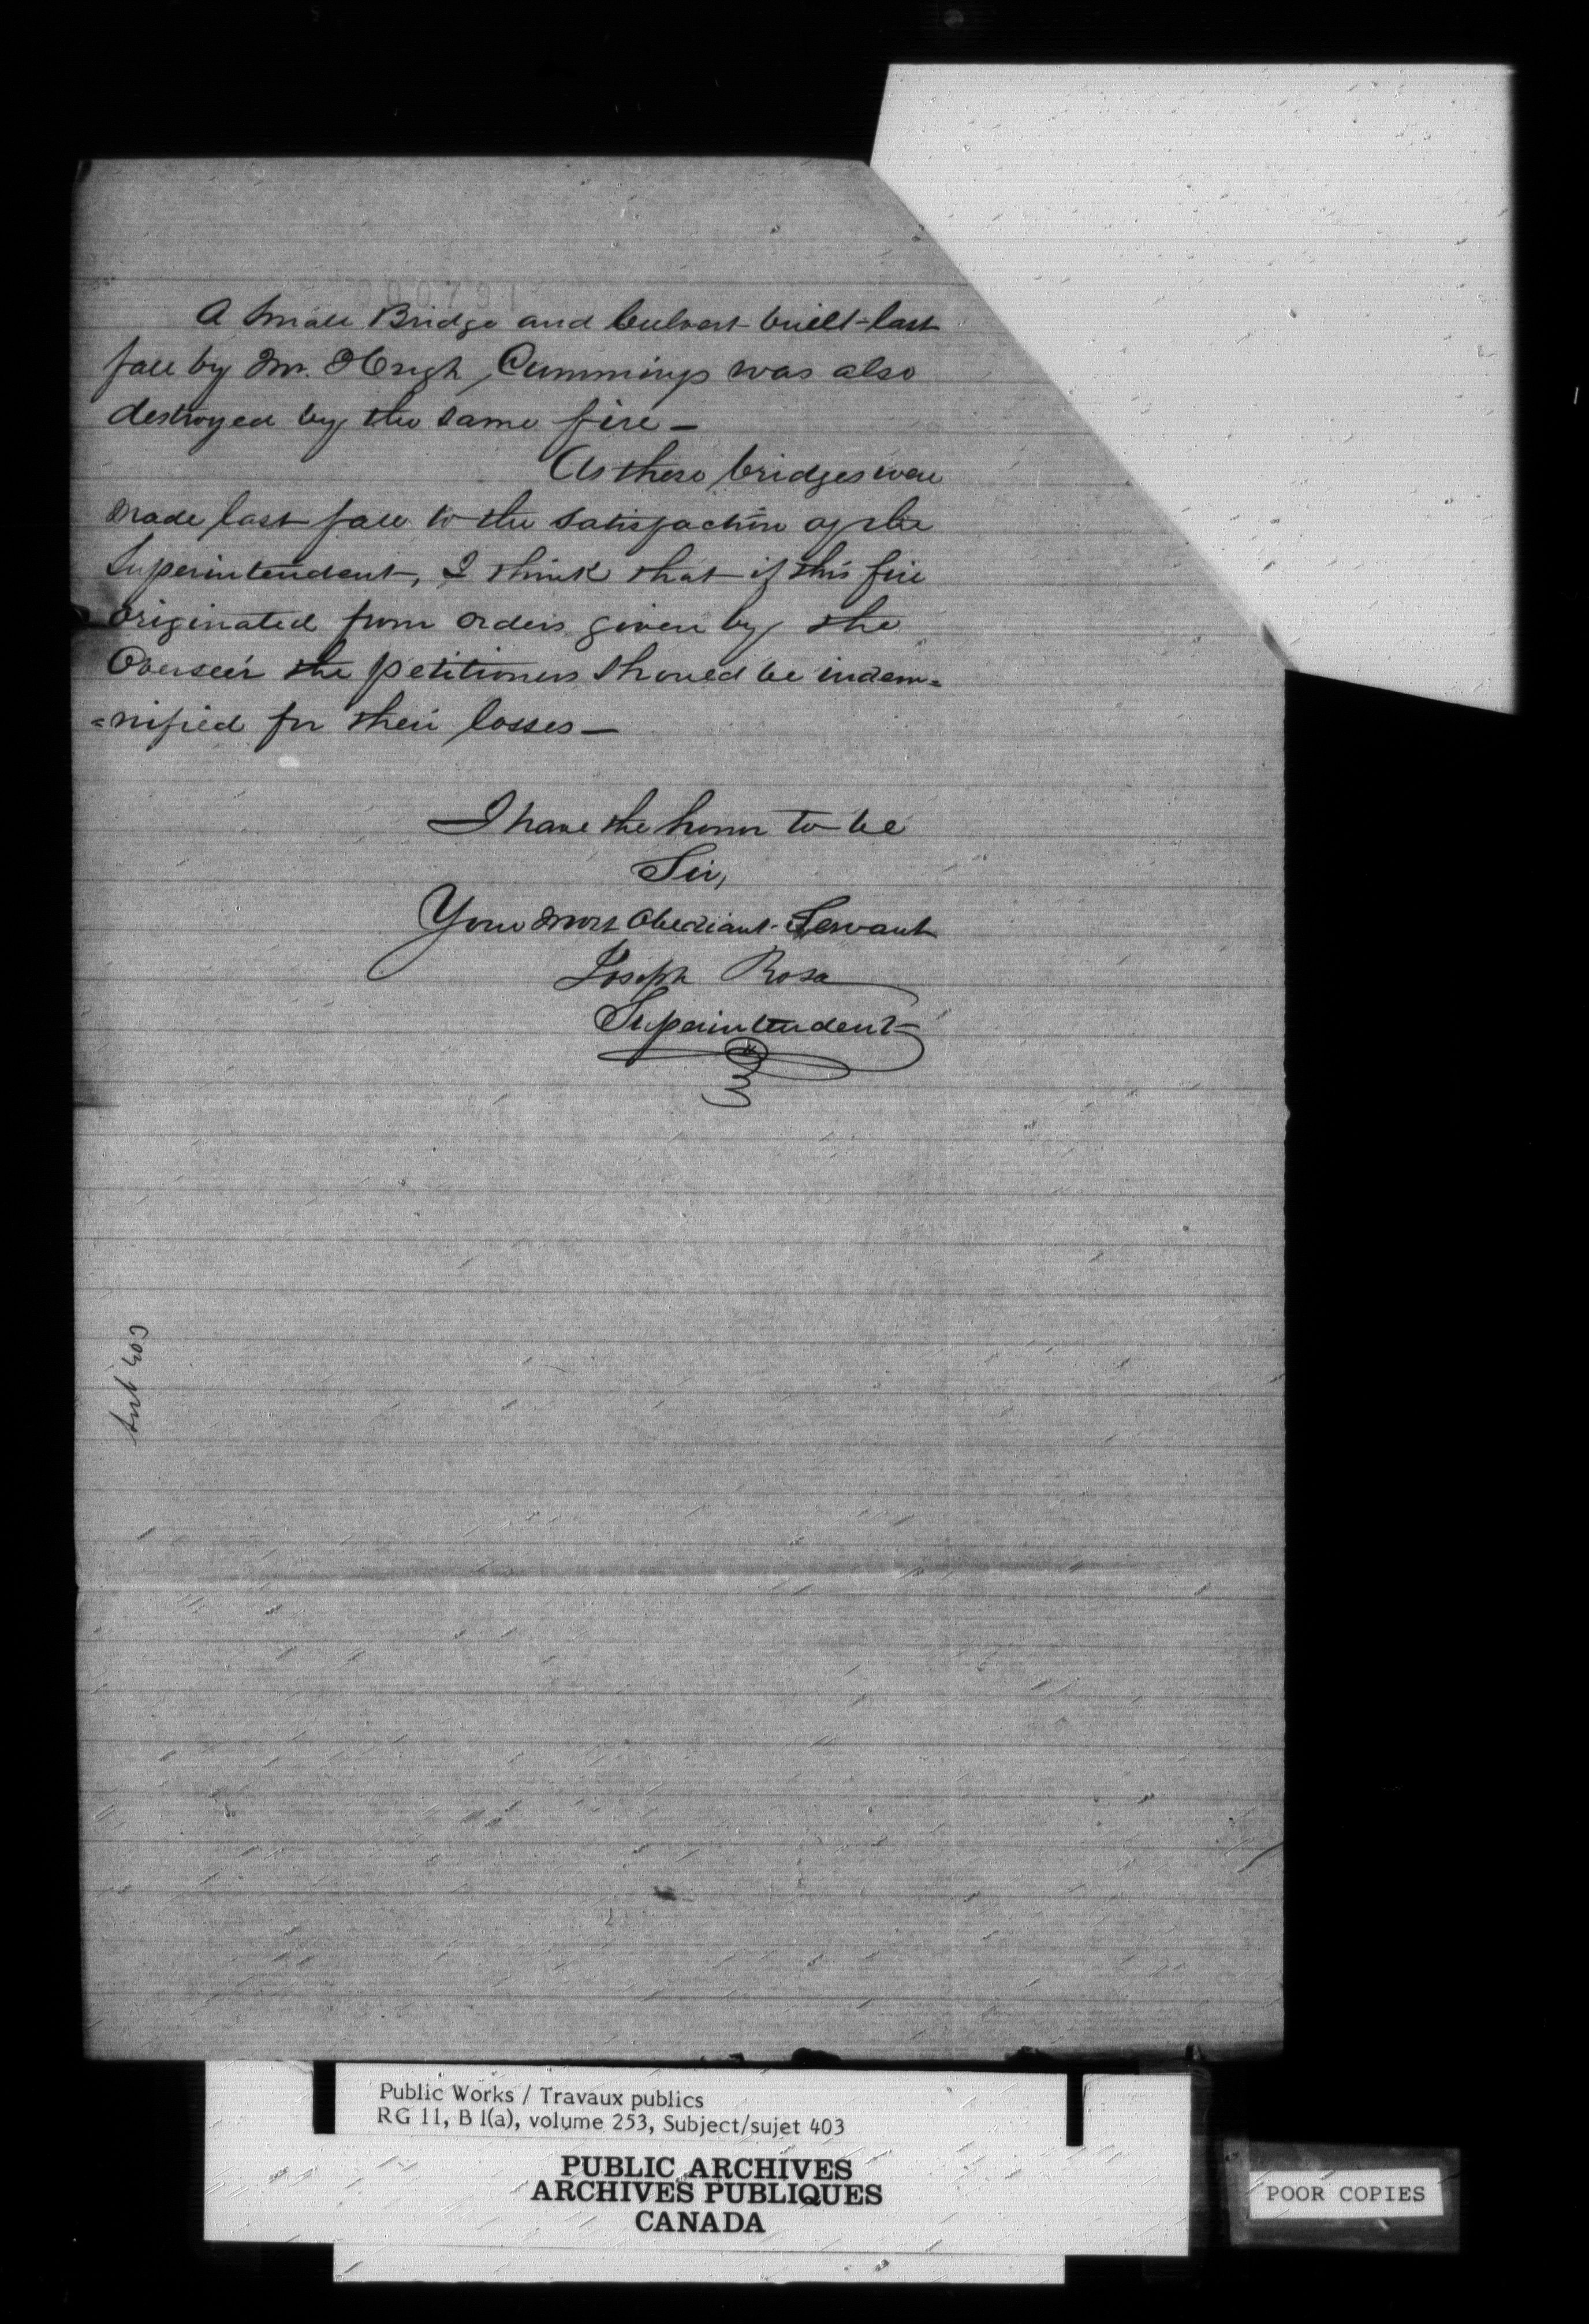 A Small Bridge and Culvert built last
fall by Mr. Hugh Cummings was also
destroyed by the same fire —
As these bridges were
made last fall to the satisfaction of the
Superintendent, I think that if this fire
originated from orders given by the
Overseer the petitioners should be indem=
=nified for their losses —
I have the honor to be
Sir,
Your most Obediant Servant
Joseph Rosa
Superintendent
Sub 403
Public Works / Travaux publics
RG 11, B 1(a), volume 253, Subject/sujet 403
PUBLIC ARCHIVES
ARCHIVES PUBLIQUES
CANADA
POOR COPIES